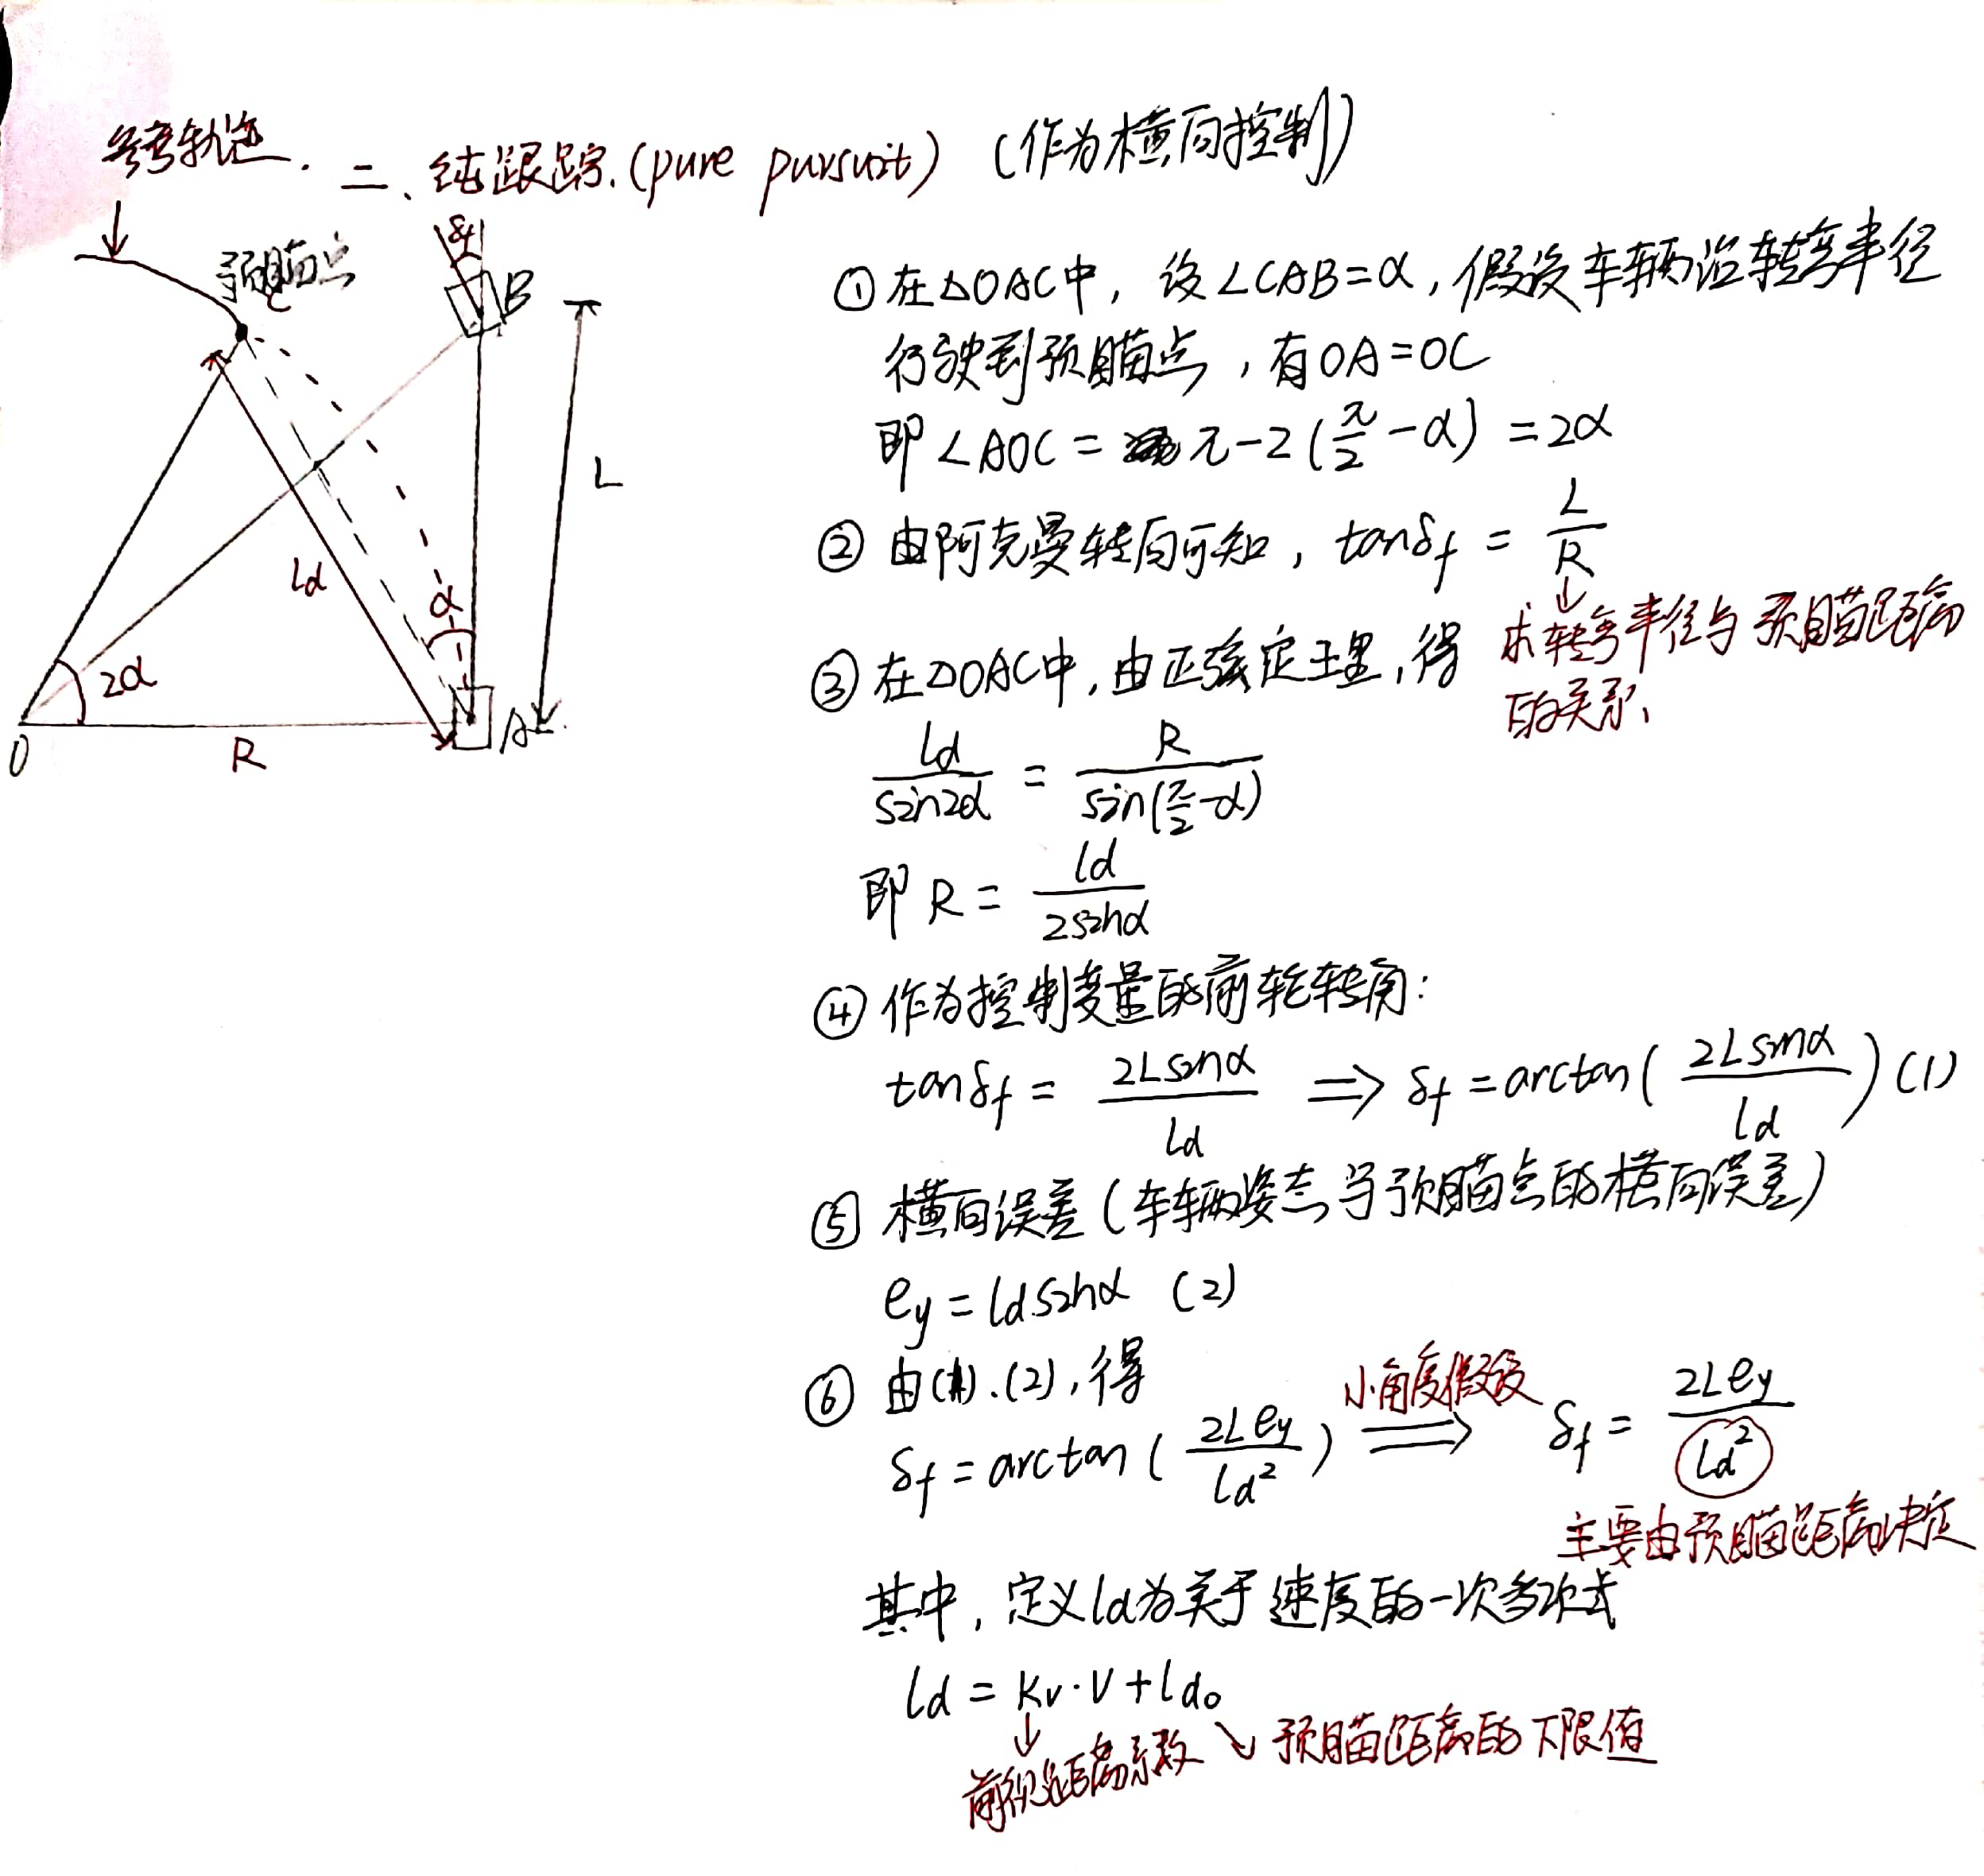 参考轨迹.
二、纯跟踪.(pure pursuit) (作为横向控制)
预瞄点
C
δf
B
L
ld
α
2α
O
R
A
① 在△OAC中, 设∠CAB=α, 假设车辆沿转弯半径
行驶到预瞄点, 有OA=OC
即∠AOC = π-2(π/2-α) = 2α
② 由阿克曼转向可知, tanδf = L/R
↓
求转弯半径与预瞄距离
的关系、
③ 在△OAC中, 由正弦定理, 得
ld/sin2α = R/sin(π/2-α)
即 R = ld/2sinα
④ 作为控制变量的前轮转角:
tanδf = 2Lsinα/ld ⟹ δf = arctan(2Lsinα/ld) (1)
⑤ 横向误差(车辆姿态与预瞄点的横向误差)
ey = ldsinα (2)
⑥ 由(1).(2), 得
小角度假设
δf = arctan(2Ley/ld²) ⟹ δf = 2Ley/ld²
主要由预瞄距离决定
其中, 定义ld为关于速度的一次多项式
ld = Kv·V+ld0
前视距离系数 ↘ 预瞄距离的下限值